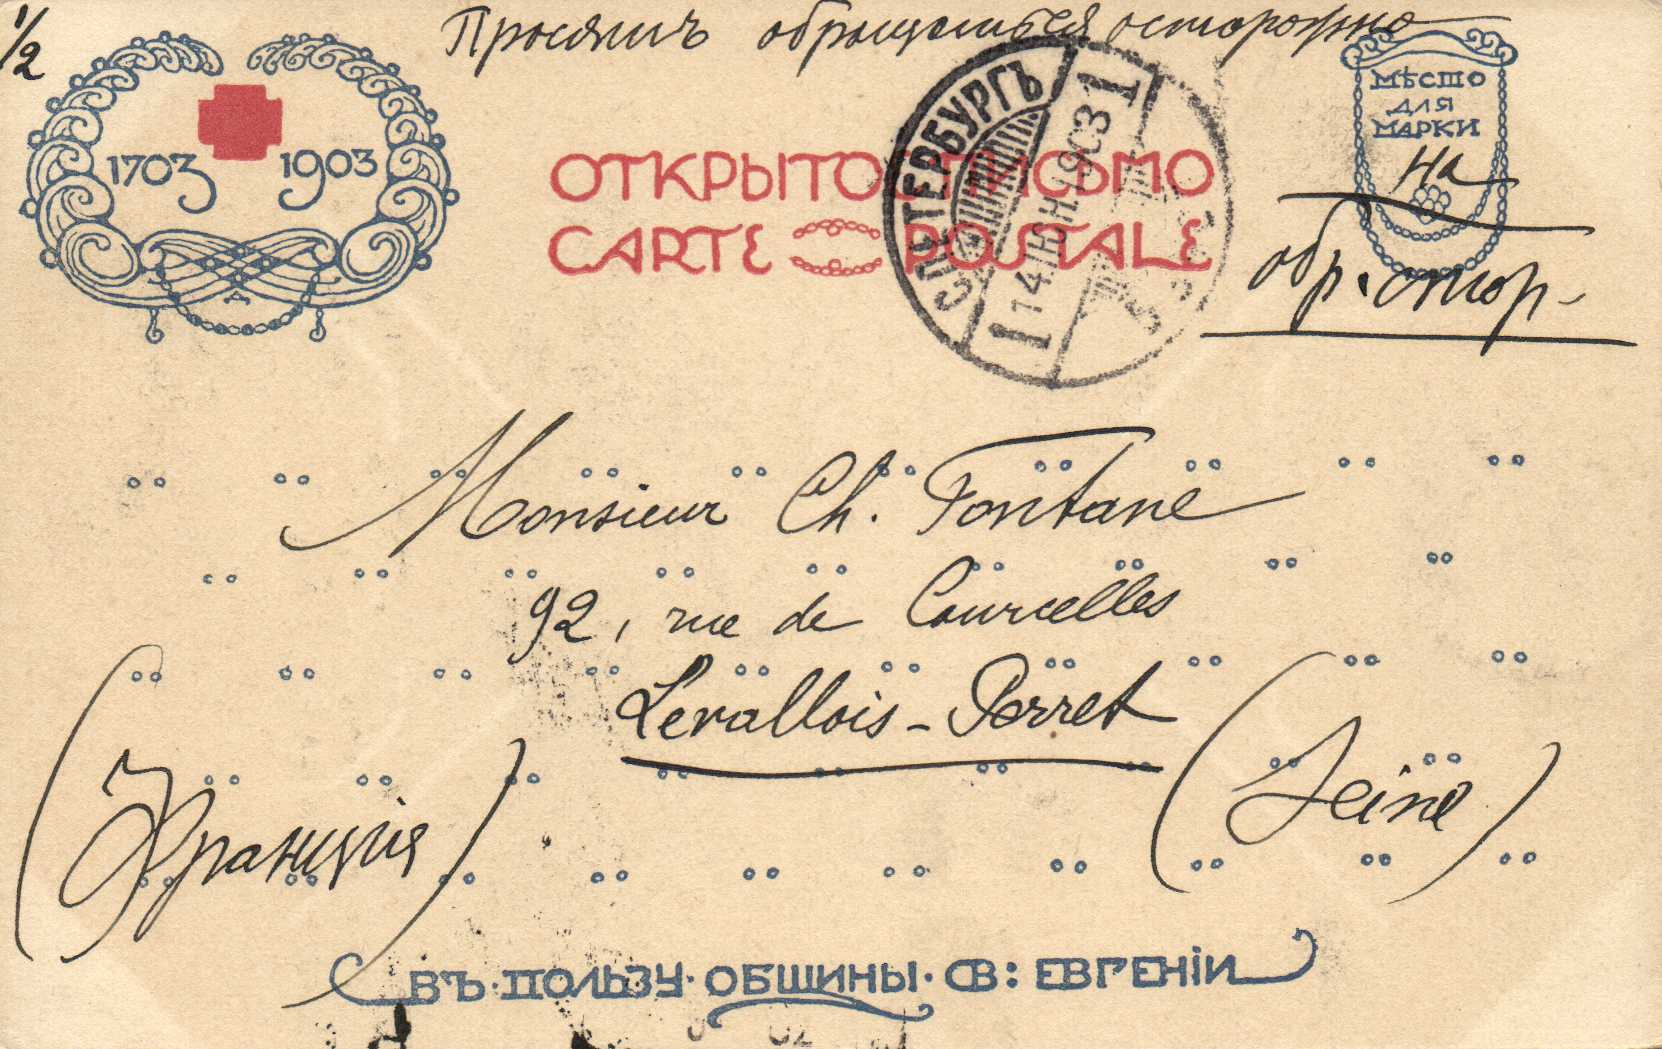 1/2
Просятъ обращаться осторожно
1703 1903
МѢСТО
ДЛЯ
МАРКИ
на
обр. стор.
ОТКРЫТОЕ ПИСЬМО
CARTE POSTALE
С.ПЕТЕРБУРГЪ
14 ІЮН. 1903
1
1
Monsieur Ch. Fontane
92, rue de Courcelles
Levallois-Perret
(Seine)
(Франція)
ВЪ·ПОЛЬЗУ·ОБЩИНЫ·СВ: ЕВГЕНІИ